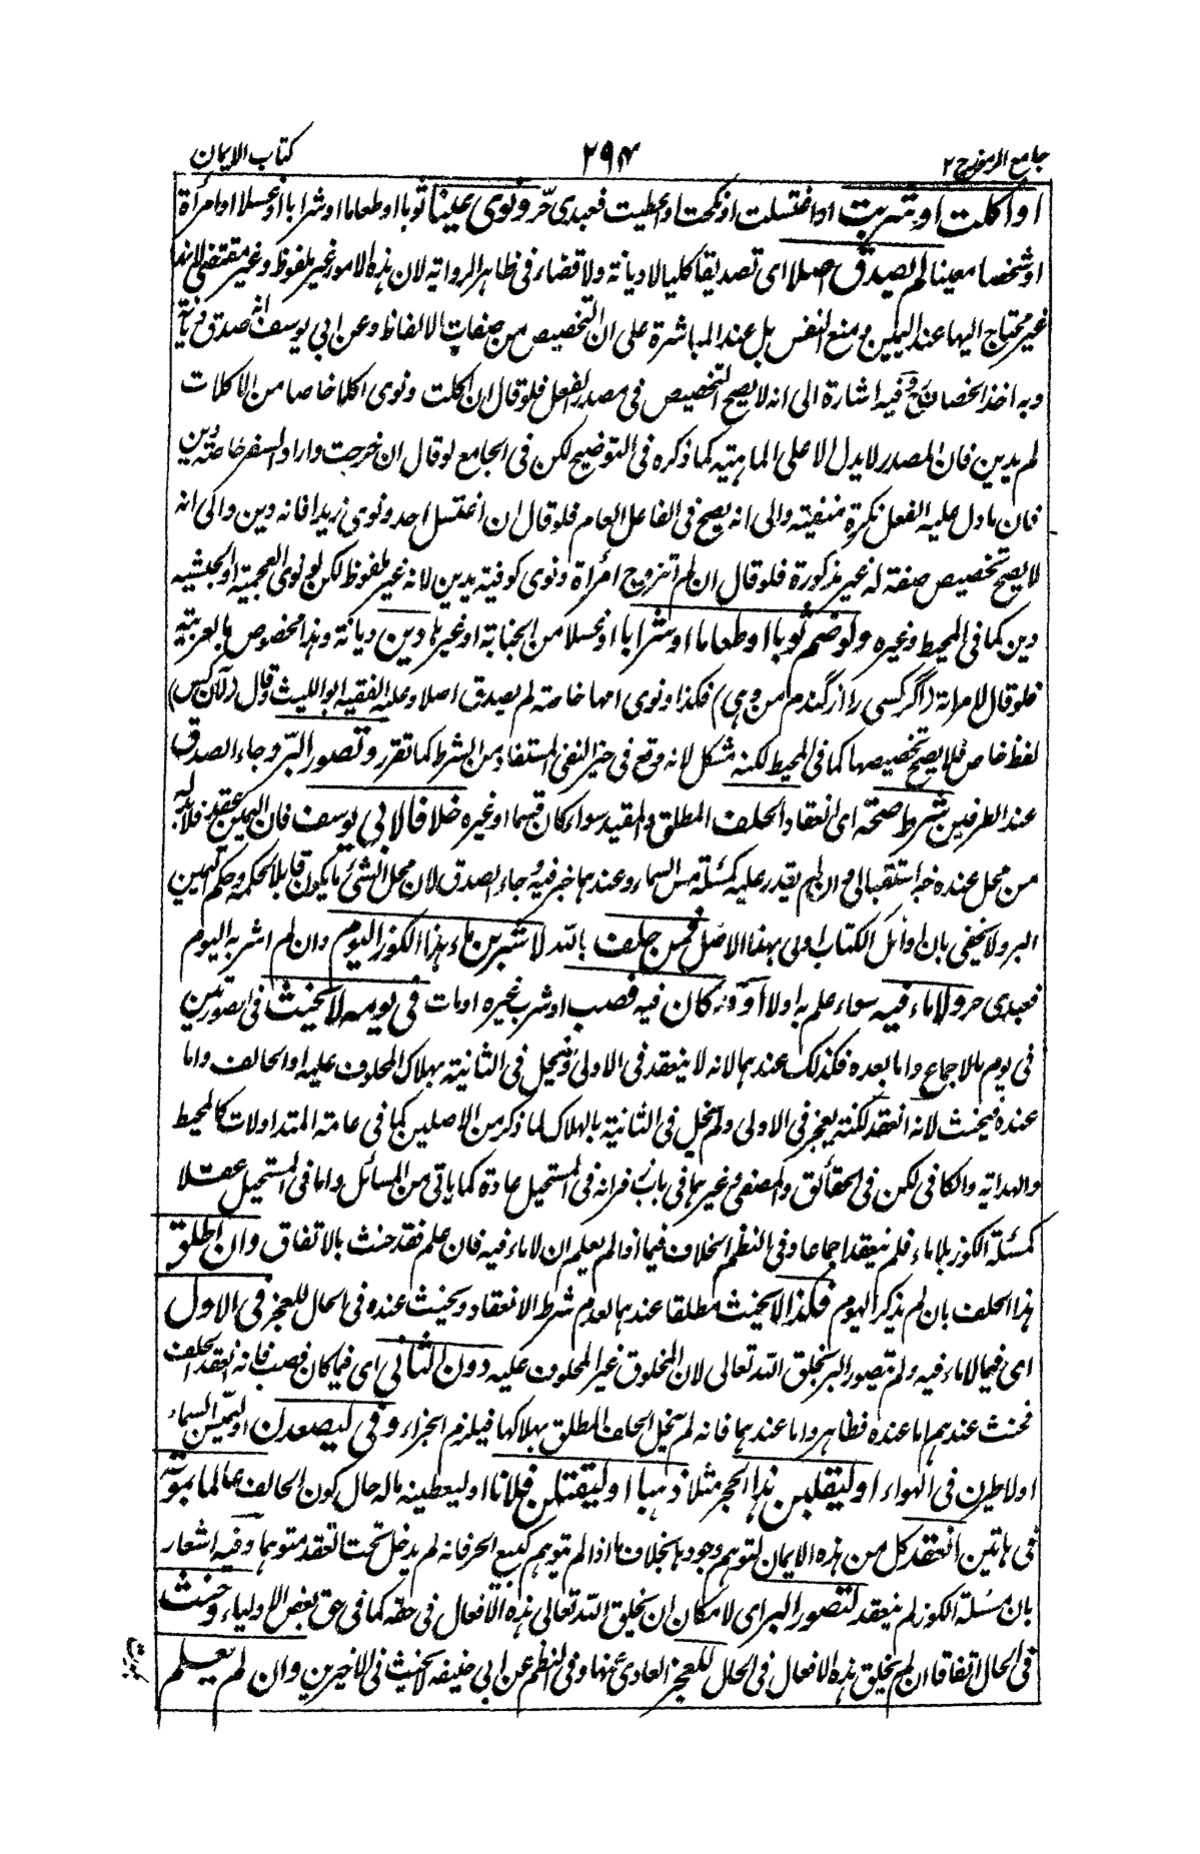 جامع الرموز ج ٢
٢٩٤
كتاب الايمان
او اكلت او شربت او اغتسلت او نكحت او اعطيت فعبدى حرّ ونوى عينا ثوبا او طعاما او شرابا او غسلا او امرأة
او شخصا معينا لم يصدق اصلا اى تصديقا كليا لا ديانة ولا قضاء فى ظاهر الرواية لان هذه الامور غير ملفوظ وغير مقتضى لانها
غير محتاج اليها عند اليمين و منع النفس بل عند المباشرة على ان التخصيص من صفات الالفاظ وعن ابي يوسف انه صدق ديانة
وبه اخذ الخصاف وفيه اشارة الى انه لا يصح التخصيص فى مصدر الفعل فلو قال ان اكلت ونوى اكلا خاصا من الاكلات
لم يدين فان المصدر لا يدل الا على الماهية كما ذكره فى التوضيح لكن فى الجامع لو قال ان خرجت واراد السفر خاصة دين
فان ما دل عليه الفعل نكرة منفية والى انه يصح فى الفاعل العام فلو قال ان اغتسل احد ونوى زيدا فانه دين والى انه
لا يصح تخصيص صفة له غير مذكورة فلو قال ان لم اتزوج امرأة ونوى كوفية يدين لانه غير ملفوظ لكن لو نوى العجمية او الحبشية
دين كما فى المحيط وغيره ولو ضم ثوبا او طعاما او شرابا او غسلا من الجنابة او غيرها دين ديانة وهذا مخصوص بالعربية
فلو قال لامرأته (اگر كسى را از گندم من دهى) فكذا ونوى امها خاصة لم يصدق اصلا وعند الفقيه ابو الليث وقال (لآن كس)
لفظ خاص فلا يصح تخصيصها كما فى المحيط لكنه مشكل لانه وقع فى حيز النفى المستفاد من الشرط كما تقرر وتصور البرّ وجاء الصدق
عند الطرفين شرط صحة اى انعقاد الحلف المطلق والمقيد سواء كان قسما او غيره خلافا لابي يوسف فان اليمين عقد فلا بد له
من محل عنده خبر استقبالى وان لم يقدر عليه كمسئلة مس السماء وعندهما خبر فيه رجاء الصدق لان محل الشئ ما يكون قابلا لحكمه وحكم اليمين
البر ولا يخفى بان اوائل الكتاب اولى بهذا الاصل فمن حلف بالله لا شربن ماء هذا الكوز اليوم وان لم اشربه اليوم
فعبدى حر ولا ماء فيه سواء علم به اولا او كان فيه فصب او شرب غيره او مات فى يومه لا يحنث فى الصورتين
فى يوم بالاجماع واما بعده فكذلك عندهما لانه لا ينعقد فى الاولى وينحل فى الثانية بهلاك المحلوف عليه او الحالف واما
عنده فيحنث لانه انعقد لكنه يعجز فى الاولى ولم ينحل فى الثانية بالهلاك لما ذكر من الاصلين كما فى عامة المتداولات كالمحيط
والهداية والكافى لكن فى الحقائق والمصفى وغيرهما فى باب زفر انه فى المستحيل عادة كما ياتى من المسائل واما فى المستحيل عقلا
كمسئلة الكوز بلا ماء فلم ينعقد اجماعا وفى النظم الخلاف فيما اذا لم يعلم ان لا ماء فيه فان علم فقد حنث بالاتفاق وان اطلق
هذا الحلف بان لم يذكر اليوم فكذا لا يحنث مطلقا عندهما لعدم شرط الانعقاد ويحنث عنده فى الحال للعجز فى الاول
اى فيما لا ماء فيه ولم يتصور البر بخلق الله تعالى لان المخلوق غير المحلوف عليه دون الثانى اى فيما كان فصب فانه انعقد الحلف
فحنث عندهم اما عنده فظاهر واما عندهما فانه لم ينحل الحلف المطلق بهلاكها فيلزم الجزاء وفى ليصعدن او ليمسن السماء
او لاطيرن فى الهواء او ليقلبن هذا الحجر مثلا ذهبا او ليقتلن فلانا او ليعطينه ماله حال كون الحالف عالما بموته
فى هاتين انعقد كل من هذه الايمان لتوهم وجودها بخلاف ما اذا لم يتوهم كبيع الحر فانه لم يدخل تحت العقد متوهما وفيه اشعار
بان مسئلة الكوز لم ينعقد لتصور البر اى لامكان ان يخلق الله تعالى هذه الافعال فى حقه كما فى حق بعض الاولياء وحنث
فى الحال اتفاقا ان لم يخلق هذه الافعال فى الحال للعجز العادى عنها وفى النظم عن ابي حنيفة لا يحنث فى الاخيرين وان لم يعلم